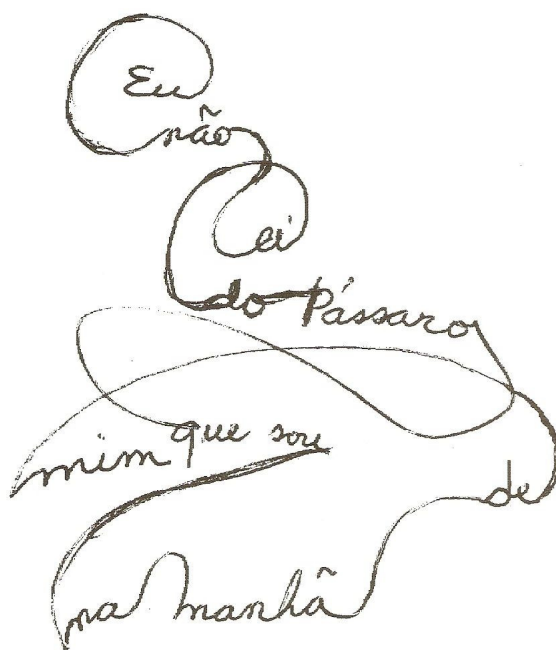 Eu
não
Cei
do Pássaro
que sou
mim
de
na manhã